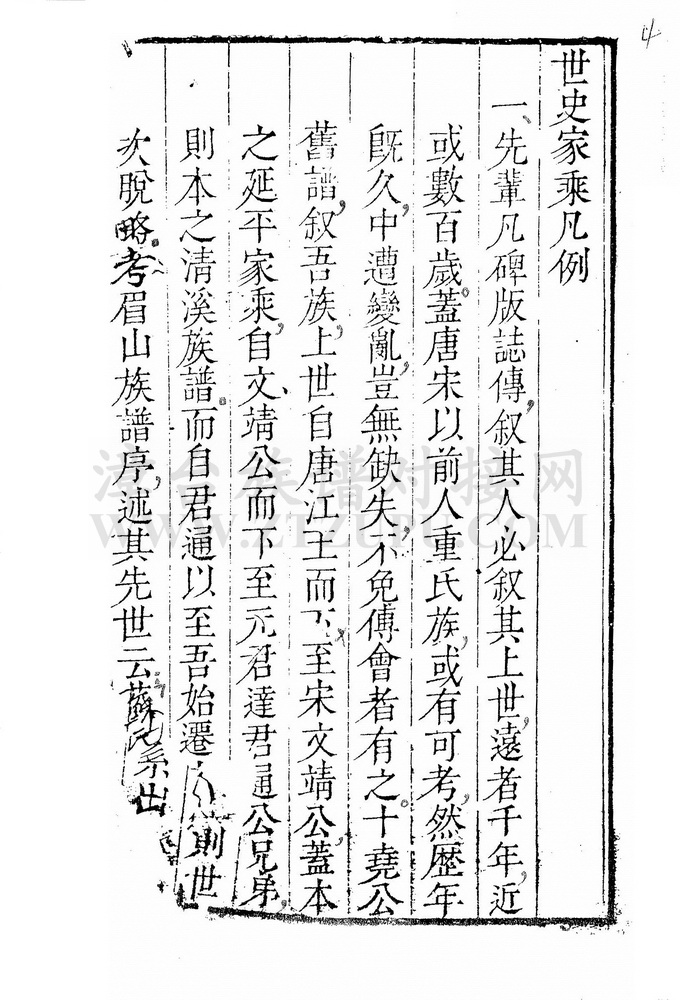 世史家乘凡例
一先輩凡碑版誌傳叙其人必叙其上世遠者千年近
或數百歲蓋唐宋以前人重氏族或有可考然歷年
既久中遭變亂豈無缺失不免傅會者有之十堯公
舊譜叙吾族上世自唐江王而下至宋文靖公蓋本
之延平家乘自文靖公而下至元君達君通公兄弟
則本之清溪族譜而自君通以至吾始遷公則世
次脫略考眉山族譜序述其先世云蘇氏系出
4
WWW.ZTZUPU.COM